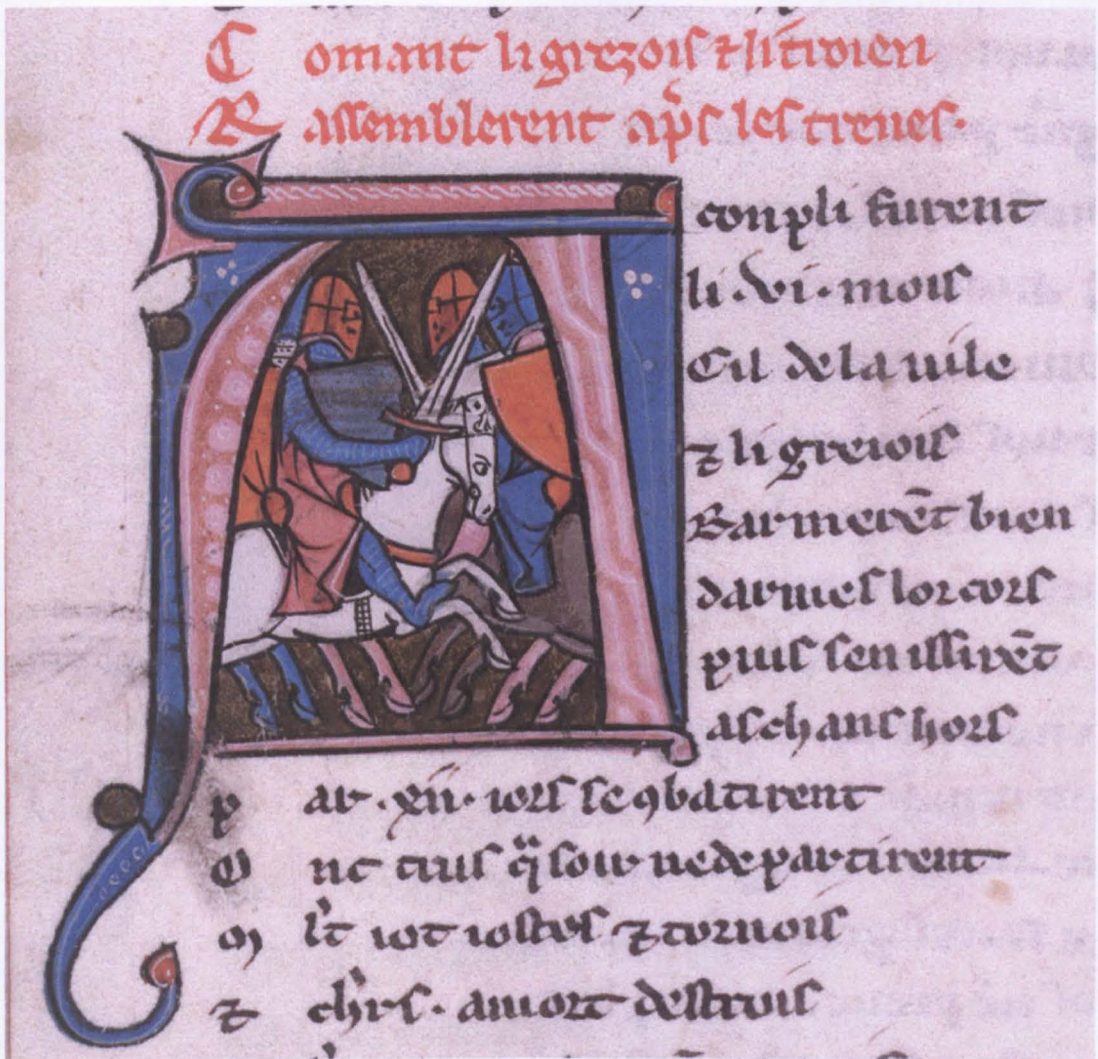 C omant li grezois ⁊ li troien
R assemblerent ap̾s les treues·
A conpli furent
li ·vi· mois
Cil de la uile
⁊ li greiois
Sarmerēt bien
darmes lor cors
puis sen issirēt
as chans hors
P ar ·xii· iors se ꝯbatirent
O nc trus q̃ soir ne departirent
M l̃t iot iostes ⁊ tornois
⁊ ch̾rs· a mort destrois